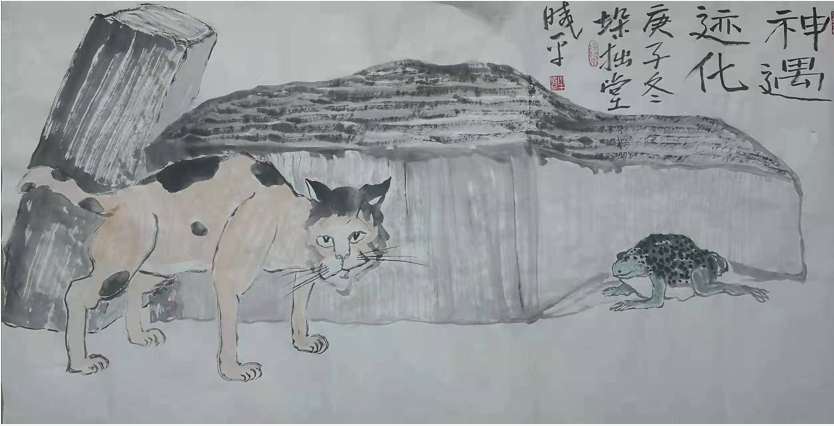 神遇
迹化
庚子冬
垛拙堂
晓平